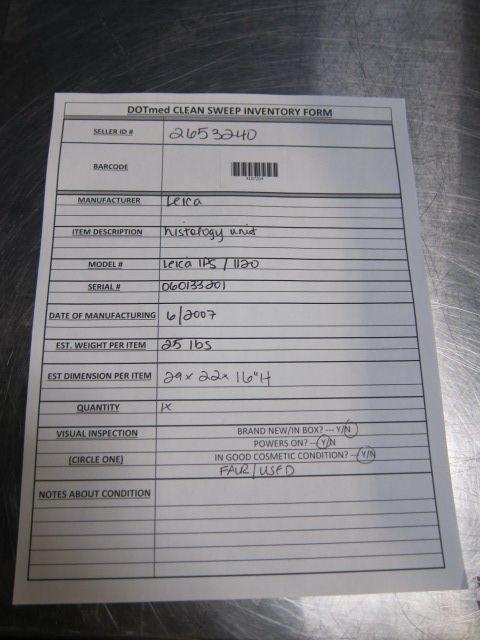 DOTmed CLEAN SWEEP INVENTORY FORM
SELLER ID # 2653240
BARCODE
MANUFACTURER Leica
ITEM DESCRIPTION histology unit
MODEL # Leica IPS / 1120
SERIAL # 060133201
DATE OF MANUFACTURING 6/2007
EST. WEIGHT PER ITEM 25 lbs
EST DIMENSION PER ITEM 29 x 22 x 16"H
QUANTITY 1x
VISUAL INSPECTION BRAND NEW/IN BOX? --- Y/N
POWERS ON? --- Y/N
(CIRCLE ONE) IN GOOD COSMETIC CONDITION? -- Y/N
FAIR/USED
NOTES ABOUT CONDITION